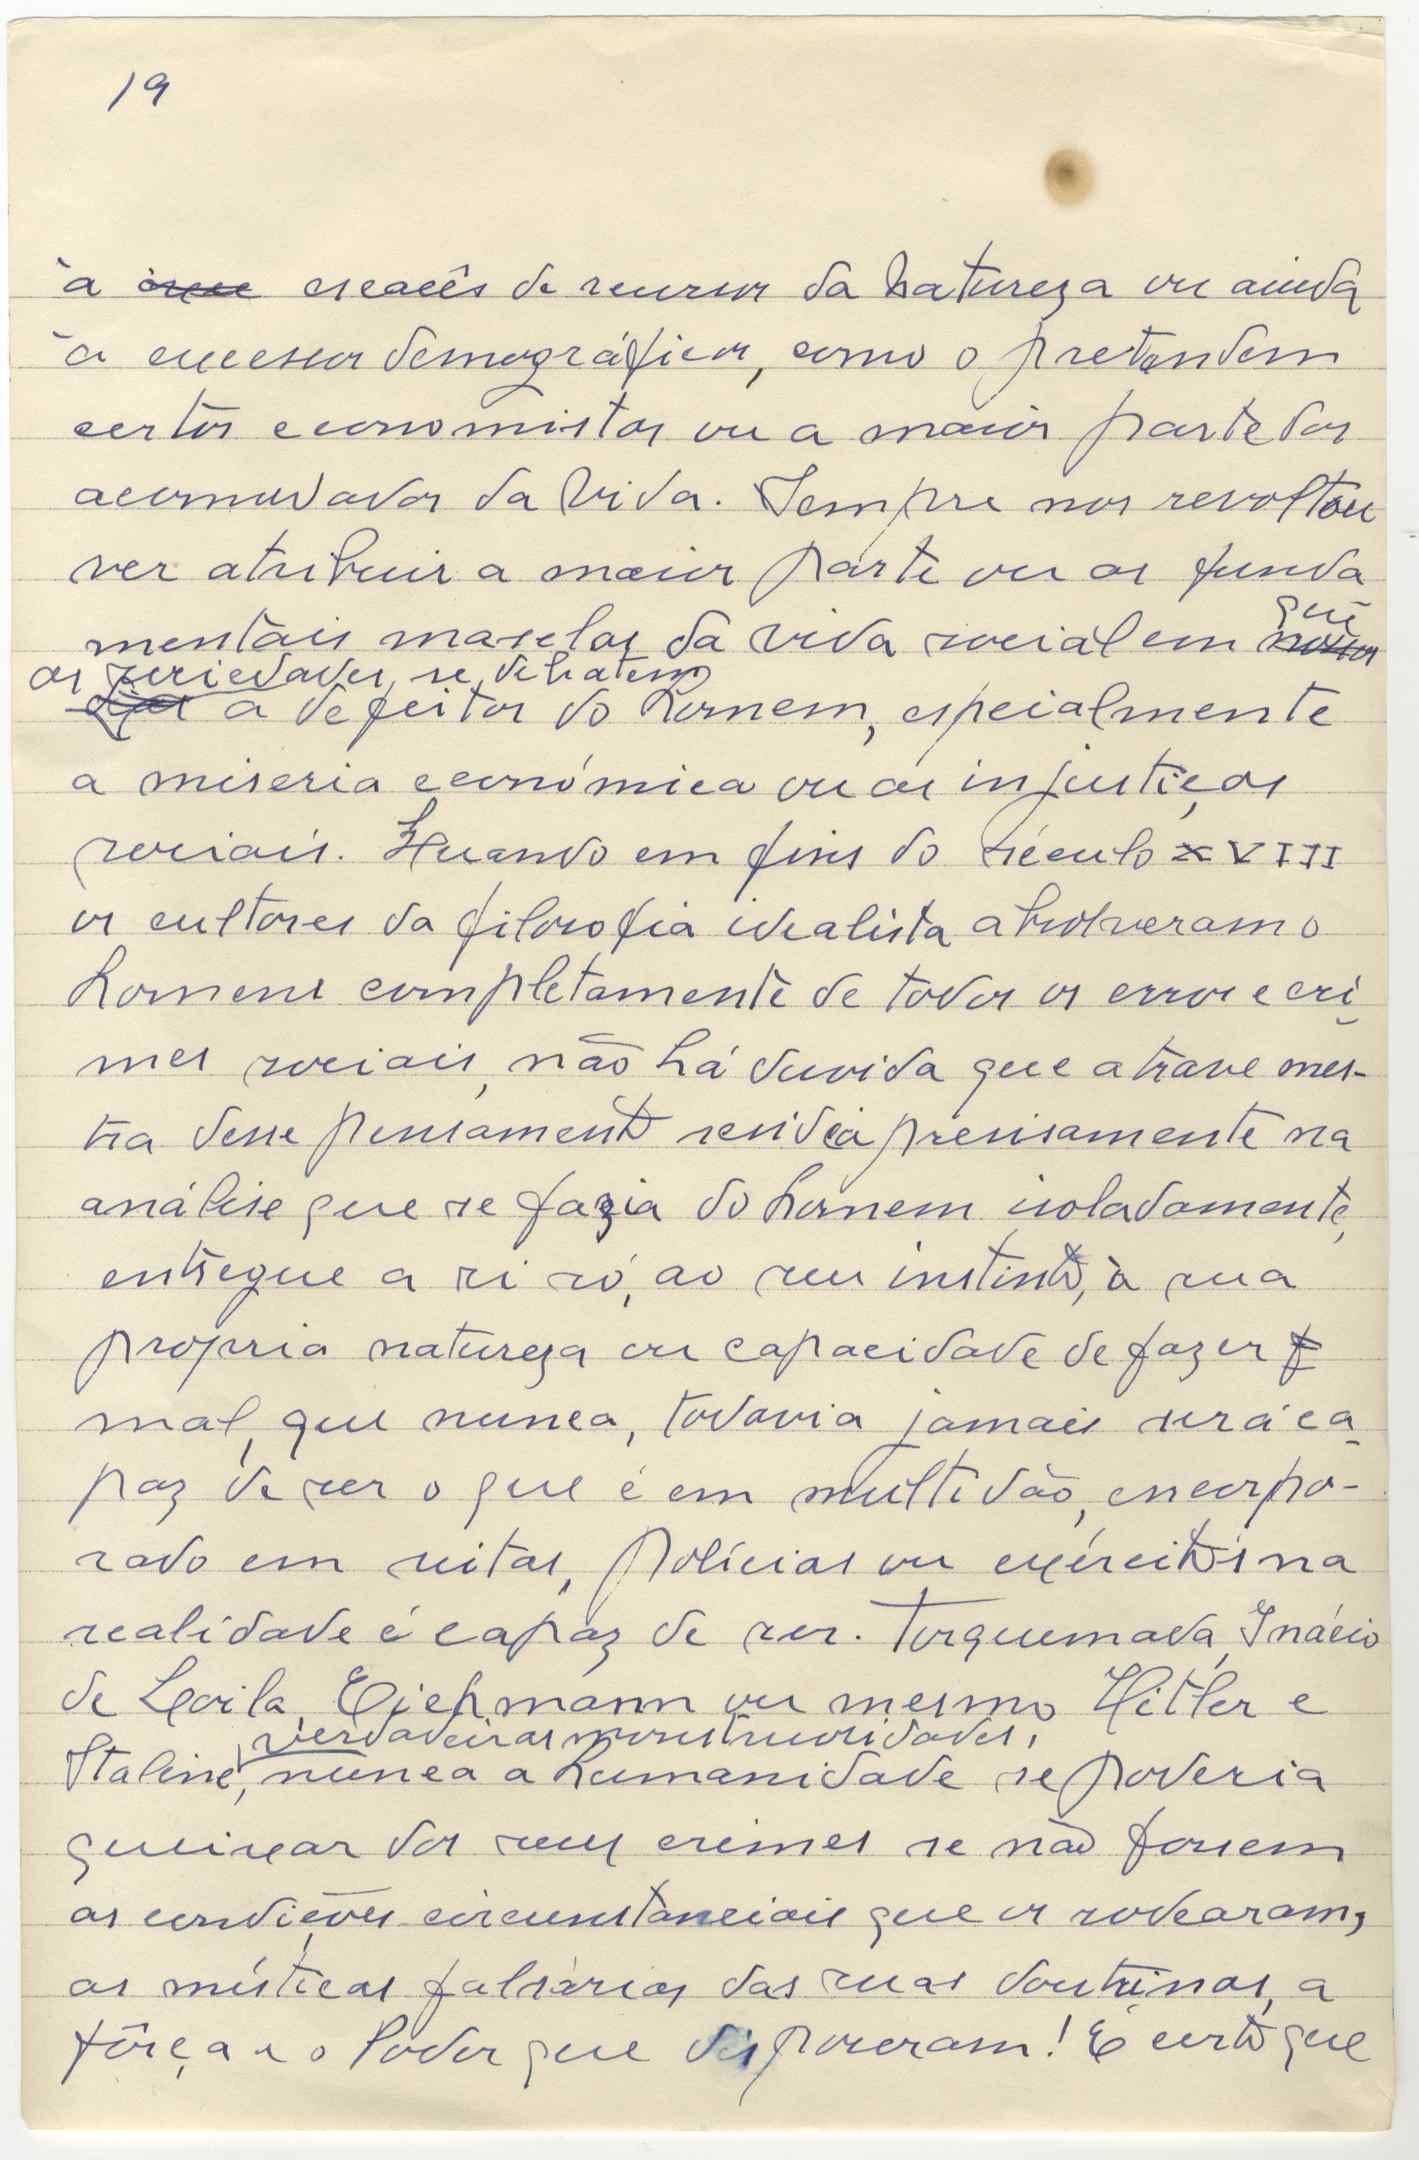 19
à escacês de recursos da Natureza ou ainda
à excessos demográficos, como o pretendem
certos economistas ou a maior parte dos
acomodados da Vida. Sempre nos revoltou
ver atribuir a maior parte ou as funda
mentais mazelas da vida social em que
as sociedades se debatem
a defeitos do homem, espcialmente
a miseria económica ou as injustiças
sociais. Quando em fins do século XVIII
os cultores da filosofia idealista absolveram o
homens completamente de todos os erros e cri
mes sociais, não há duvida que a trave mes-
tra desse pensamento residia precisamente na
análise que se fazia do homem isoladamente,
entregue a si só, ao seu instinto, à sua
propria natureza ou capacidade de fazer
mal, que nunca, todavia jamais será ca
paz de ser o que é em multidão, encorpo-
rado em seitas, polícias ou exércitos na
realidade é capaz de ser. Torquemada, Inácio
de Looila, Eichmann ou mesmo Hitler e
verdadeiras monstruosidades,
Staline, nunca a humanidade se poderia
queixar dos seus crimes se não fossem
as condições circunstânciais que os rodearam,
as místicas falsárias das suas doutrinas, a
fôrça e o Poder que disposeram! É certo que